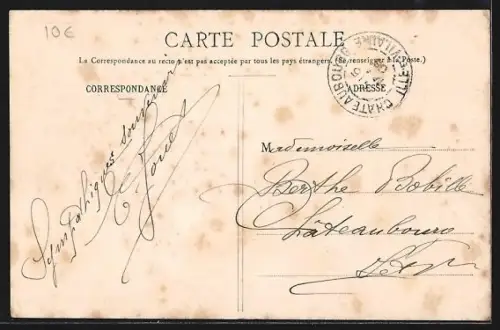 10€
CARTE POSTALE
La Correspondance au recto n'est pas acceptée par tous les pays étrangers. (Se renseigner à la Poste.)
CORRESPONDANCE
ADRESSE
CHATEAUBOURG
ILLE-ET-VILAINE
Sympathiques souvenirs
Mademoiselle
Berthe Bobille
Châteaubourg